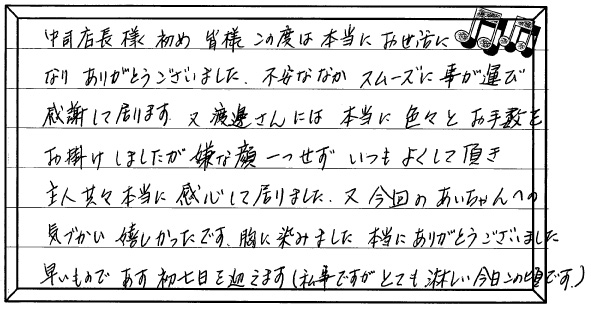 中司店長様 初め 皆様 この度は 本当に お世話に
なり ありがとうございました。不安ななか スムーズに 事が運び
感謝して居ります。又 渡邊さんには 本当に 色々と お手数を
お掛けしましたが 嫌な顔一つせず いつも よくして頂き
主人共々本当に 感心して居りました。又 今回の あいちゃんへの
気づかい 嬉しかったです。胸に染みました 本当にありがとうございました
早いもので あす 初七日を迎えます(私事ですが とても 淋しい今日この頃です。)